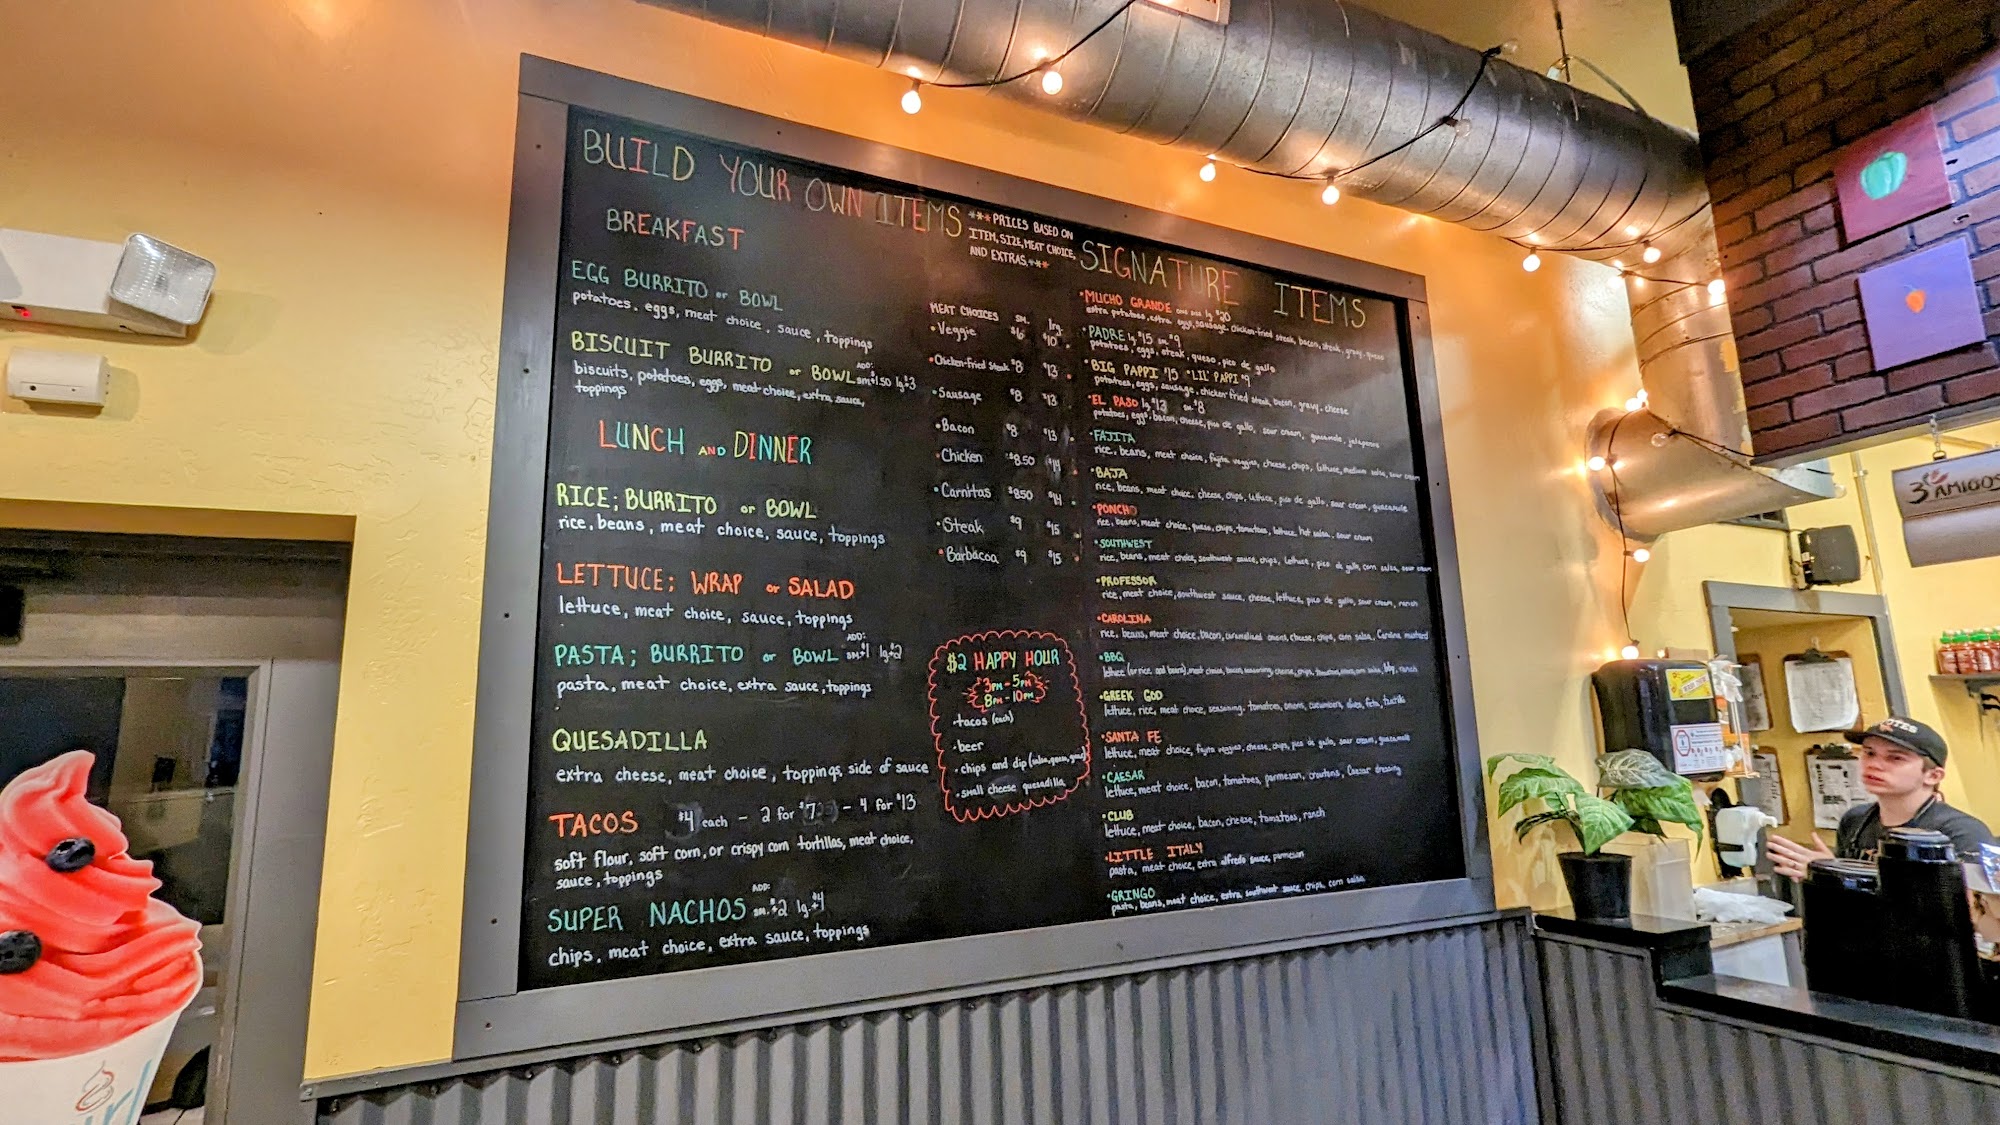 BUILD YOUR OWN ITEMS
***PRICES BASED ON
ITEM, SIZE, MEAT CHOICE,
AND EXTRAS.***
BREAKFAST
EGG BURRITO or BOWL
potatoes, eggs, meat choice, sauce, toppings
BISCUIT BURRITO or BOWL ADD: sm.$1.50 lg.$3
biscuits, potatoes, eggs, meat choice, extra sauce,
toppings
LUNCH AND DINNER
RICE; BURRITO or BOWL
rice, beans, meat choice, sauce, toppings
LETTUCE; WRAP or SALAD
lettuce, meat choice, sauce, toppings
PASTA; BURRITO or BOWL ADD: sm.$1 lg.$2
pasta, meat choice, extra sauce, toppings
QUESADILLA
extra cheese, meat choice, toppings, side of sauce
TACOS $4 each - 2 for $7 - 4 for $13
soft flour, soft corn, or crispy corn tortillas, meat choice,
sauce, toppings
SUPER NACHOS ADD: sm.$2 lg.$4
chips, meat choice, extra sauce, toppings
MEAT CHOICES sm. lrg.
•Veggie $6 $10
•Chicken-Fried Steak $8 $13
•Sausage $8 $13
•Bacon $8 $13
•Chicken $8.50 $14
•Carnitas $8.50 $14
•Steak $9 $15
•Barbacoa $9 $15
$2 HAPPY HOUR
3PM-5PM
8PM-10PM
•tacos (each)
•beer
•chips and dip (salsa, queso, guac)
•small cheese quesadilla
SIGNATURE ITEMS
•MUCHO GRANDE one size lg $20
extra potatoes, extra eggs, sausage, chicken-fried steak, bacon, steak, gravy, queso
•PADRE lg $15 sm $9
potatoes, eggs, steak, queso, pico de gallo
•BIG PAPPI $15 "LIL" PAPPI $9
potatoes, eggs, sausage, chicken fried steak, bacon, gravy, cheese
•EL PASO lg $13 sm $8
potatoes, eggs, bacon, cheese, pico de gallo, sour cream, guacamole, jalapenos
•FAJITA
rice, beans, meat choice, fajita veggies, cheese, chips, lettuce, medium salsa, sour cream
•BAJA
rice, beans, meat choice, cheese, chips, lettuce, pico de gallo, sour cream, guacamole
•PONCHO
rice, beans, meat choice, queso, chips, tomatoes, lettuce, hot salsa, sour cream
•SOUTHWEST
rice, beans, meat choice, southwest sauce, chips, lettuce, pico de gallo, corn salsa, sour cream
•PROFESSOR
rice, meat choice, southwest sauce, cheese, lettuce, pico de gallo, sour cream, ranch
•CAROLINA
rice, beans, meat choice, bacon, caramelized onions, cheese, chips, corn salsa, Carolina mustard
•BBQ
lettuce (or rice and beans), meat choice, bacon, seasoning, cheese, chips, tomatoes, corn salsa, bbq, ranch
•GREEK GOD
lettuce, rice, meat choice, seasoning, tomatoes, onions, cucumbers, olives, feta, tzatziki
•SANTA FE
lettuce, meat choice, fajita veggies, cheese, chips, pico de gallo, sour cream, guacamole
•CAESAR
lettuce, meat choice, bacon, tomatoes, parmesan, croutons, Caesar dressing
•CLUB
lettuce, meat choice, bacon, cheese, tomatoes, ranch
•LITTLE ITALY
pasta, meat choice, extra alfredo sauce, parmesan
•GRINGO
pasta, beans, meat choice, extra southwest sauce, chips, corn salsa
3 AMIGOS